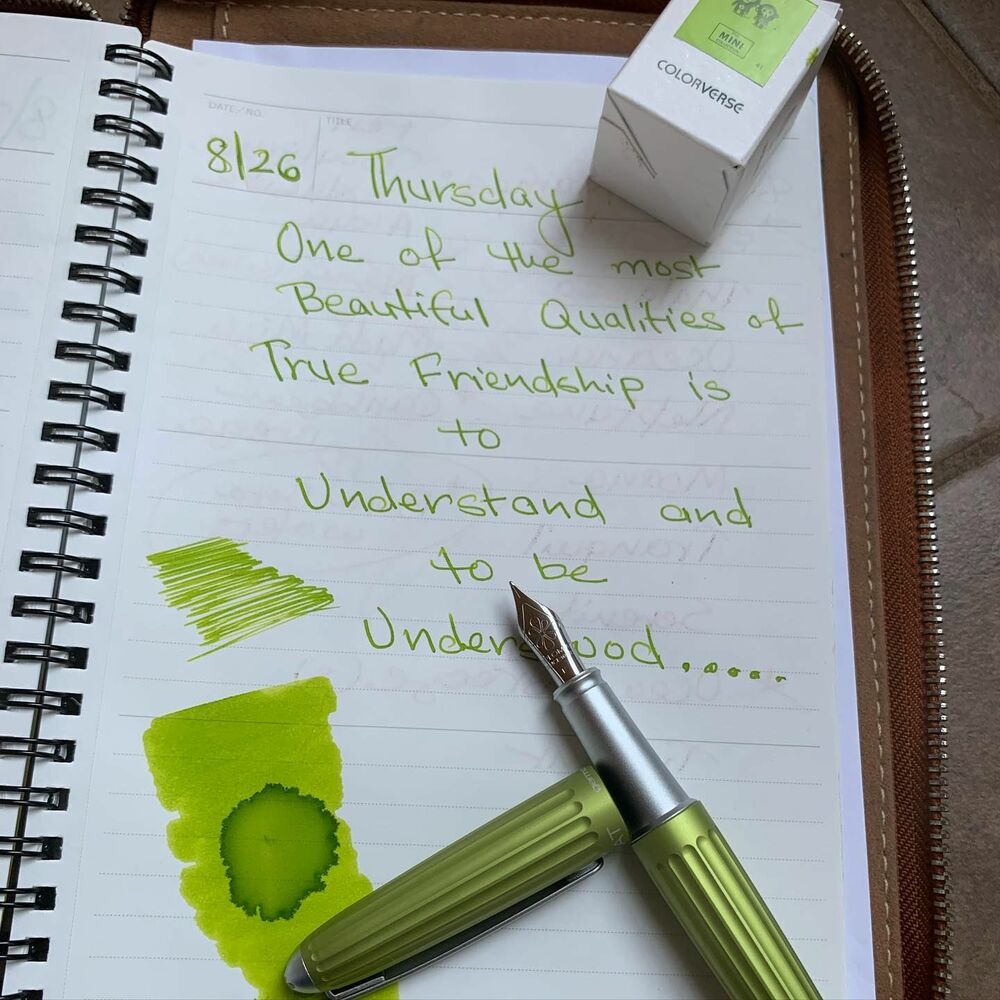 MINI
COLORVERSE
DATE/NO.
TITLE
8/26 Thursday
One of the most
Beautiful Qualities of
True Friendship is
to
Understand and
to be
Understood.....